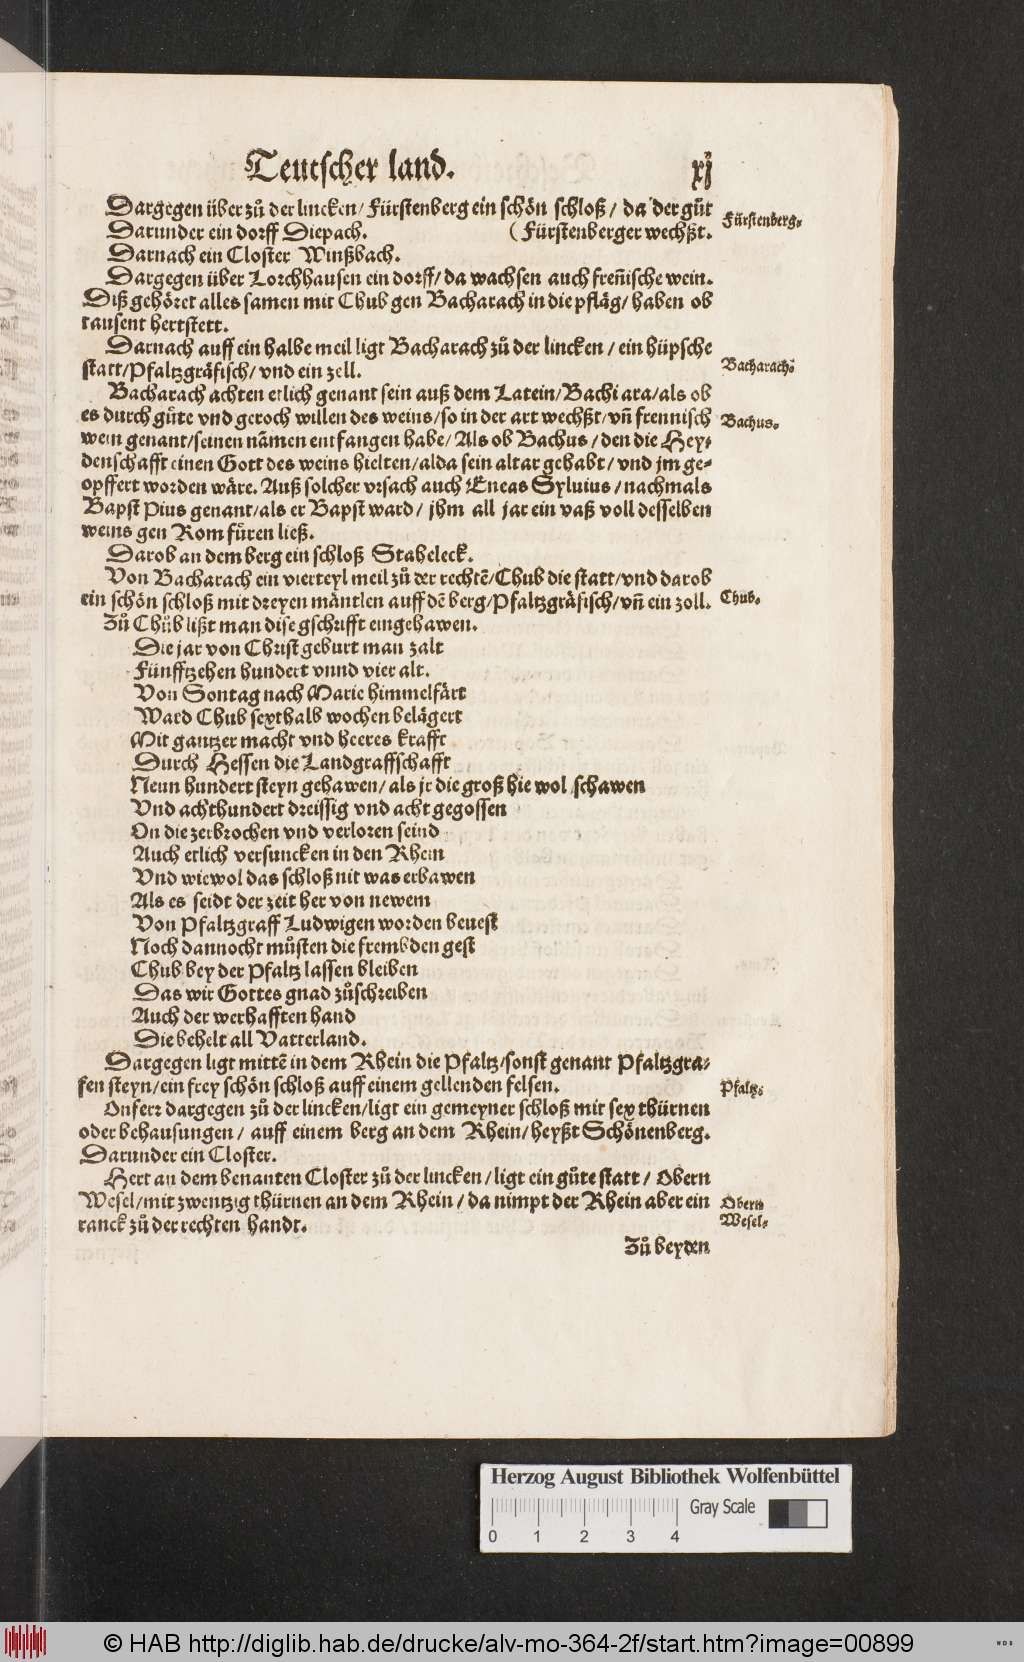 Teutscher land. xj
Dargegen über zů der lincken/ Fürstenberg ein schön schloß/ da der gůt
Fürstenberg.
Darunder ein dorff Diepach. (Fürstenberger wechßt.
Darnach ein Closter Winßbach.
Dargegen über Lorchhausen ein dorff/ da wachsen auch freñische wein.
Diß gehöret alles samen mit Chub gen Bacharach in die pfläg/ haben ob
tausent hertstett.
Darnach auff ein halbe meil ligt Bacharach zů der lincken/ ein hüpsche
statt/Pfaltzgräfisch/ vnd ein zell.
Bacharach.
Bacharach achten etlich genant sein auß dem Latein/Bachi ara/als ob
es durch gůte vnd geroch willen des weins/so in der art wechßt/vñ frennisch
Bachus.
wein genant/seinen nãmen entfangen habe/ Als ob Bachus/den die Hey-
denschafft einen Gott des weins hielten/alda sein altar gehabt/ vnd jm ge-
opffert worden wäre. Auß solcher vrsach auch Eneas Syluius/nachmals
Bapst Pius genant/als er Bapst ward/ jhm all jar ein vaß voll desselben
weins gen Rom fůren ließ.
Darob an dem berg ein schloß Staheleck.
Von Bacharach ein vierteyl meil zů der rechtẽ/Chub die statt/vnd darob
ein schön schloß mit dreyen mäntlen auff dẽ berg/Pfaltzgräfisch/vñ ein zoll.
Chub.
Zů Chůb lißt man dise gschrifft eingehawen.
Die jar von Christ geburt man zalt
Fünfftzehen hundert vnnd vier alt.
Von Sontag nach Marie himmelfärt
Ward Chub sexthalb wochen belägert
Mit gantzer macht vnd heeres krafft
Durch Hessen die Landgraffschafft
Neun hundert steyn gehawen/ als jr die groß hie wol schawen
Vnd achthundert dreissig vnd acht gegossen
On die zerbrochen vnd verloren seind
Auch etlich versuncken in den Rhein
Vnd wiewol das schloß nit was erbawen
Als es seidt der zeit her von newem
Von Pfaltzgraff Ludwigen worden beuest
Noch dannocht můsten die frembden gest
Chub bey der Pfaltz lassen bleiben
Das wir Gottes gnad zůschreiben
Auch der werhafften hand
Die behelt all Vatterland.
Dargegen ligt mittẽ in dem Rhein die Pfaltz/sonst genant Pfaltzgra-
fen steyn/ein frey schön schloß auff einem gellenden felsen.
Pfaltz.
Onferr dargegen zů der lincken/ligt ein gemeyner schloß mit sex thürnen
oder behausungen/ auff einem berg an dem Rhein/heyßt Schönenberg.
Darunder ein Closter.
Hert an dem benanten Closter zů der lincken/ligt ein gůte statt/ Obern
Wesel/mit zwentzig thürnen an dem Rhein/da nimpt der Rhein aber ein
Obern
Wesel.
ranck zů der rechten handt.
Zů beyden
Herzog August Bibliothek Wolfenbüttel
Gray Scale
0 1 2 3 4
© HAB http://diglib.hab.de/drucke/alv-mo-364-2f/start.htm?image=00899